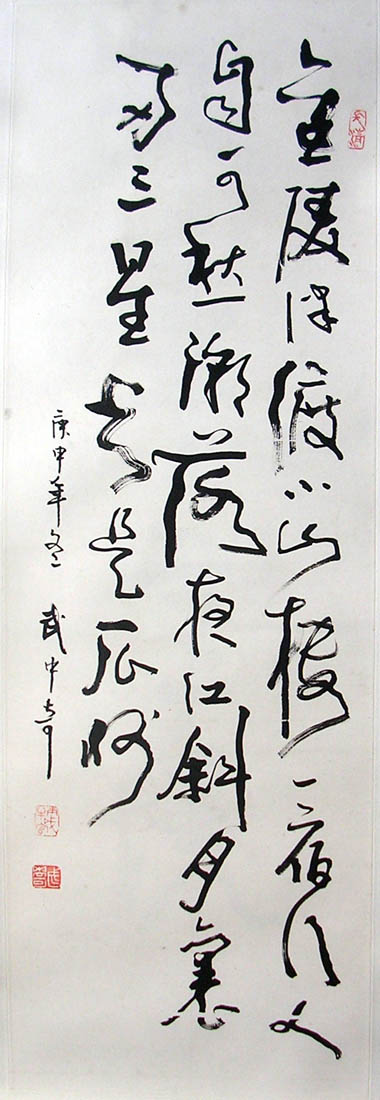 金陵津渡小山樓一宿行人
自可愁潮落夜江斜月裏
兩三星火是瓜洲
庚申年冬 武中奇